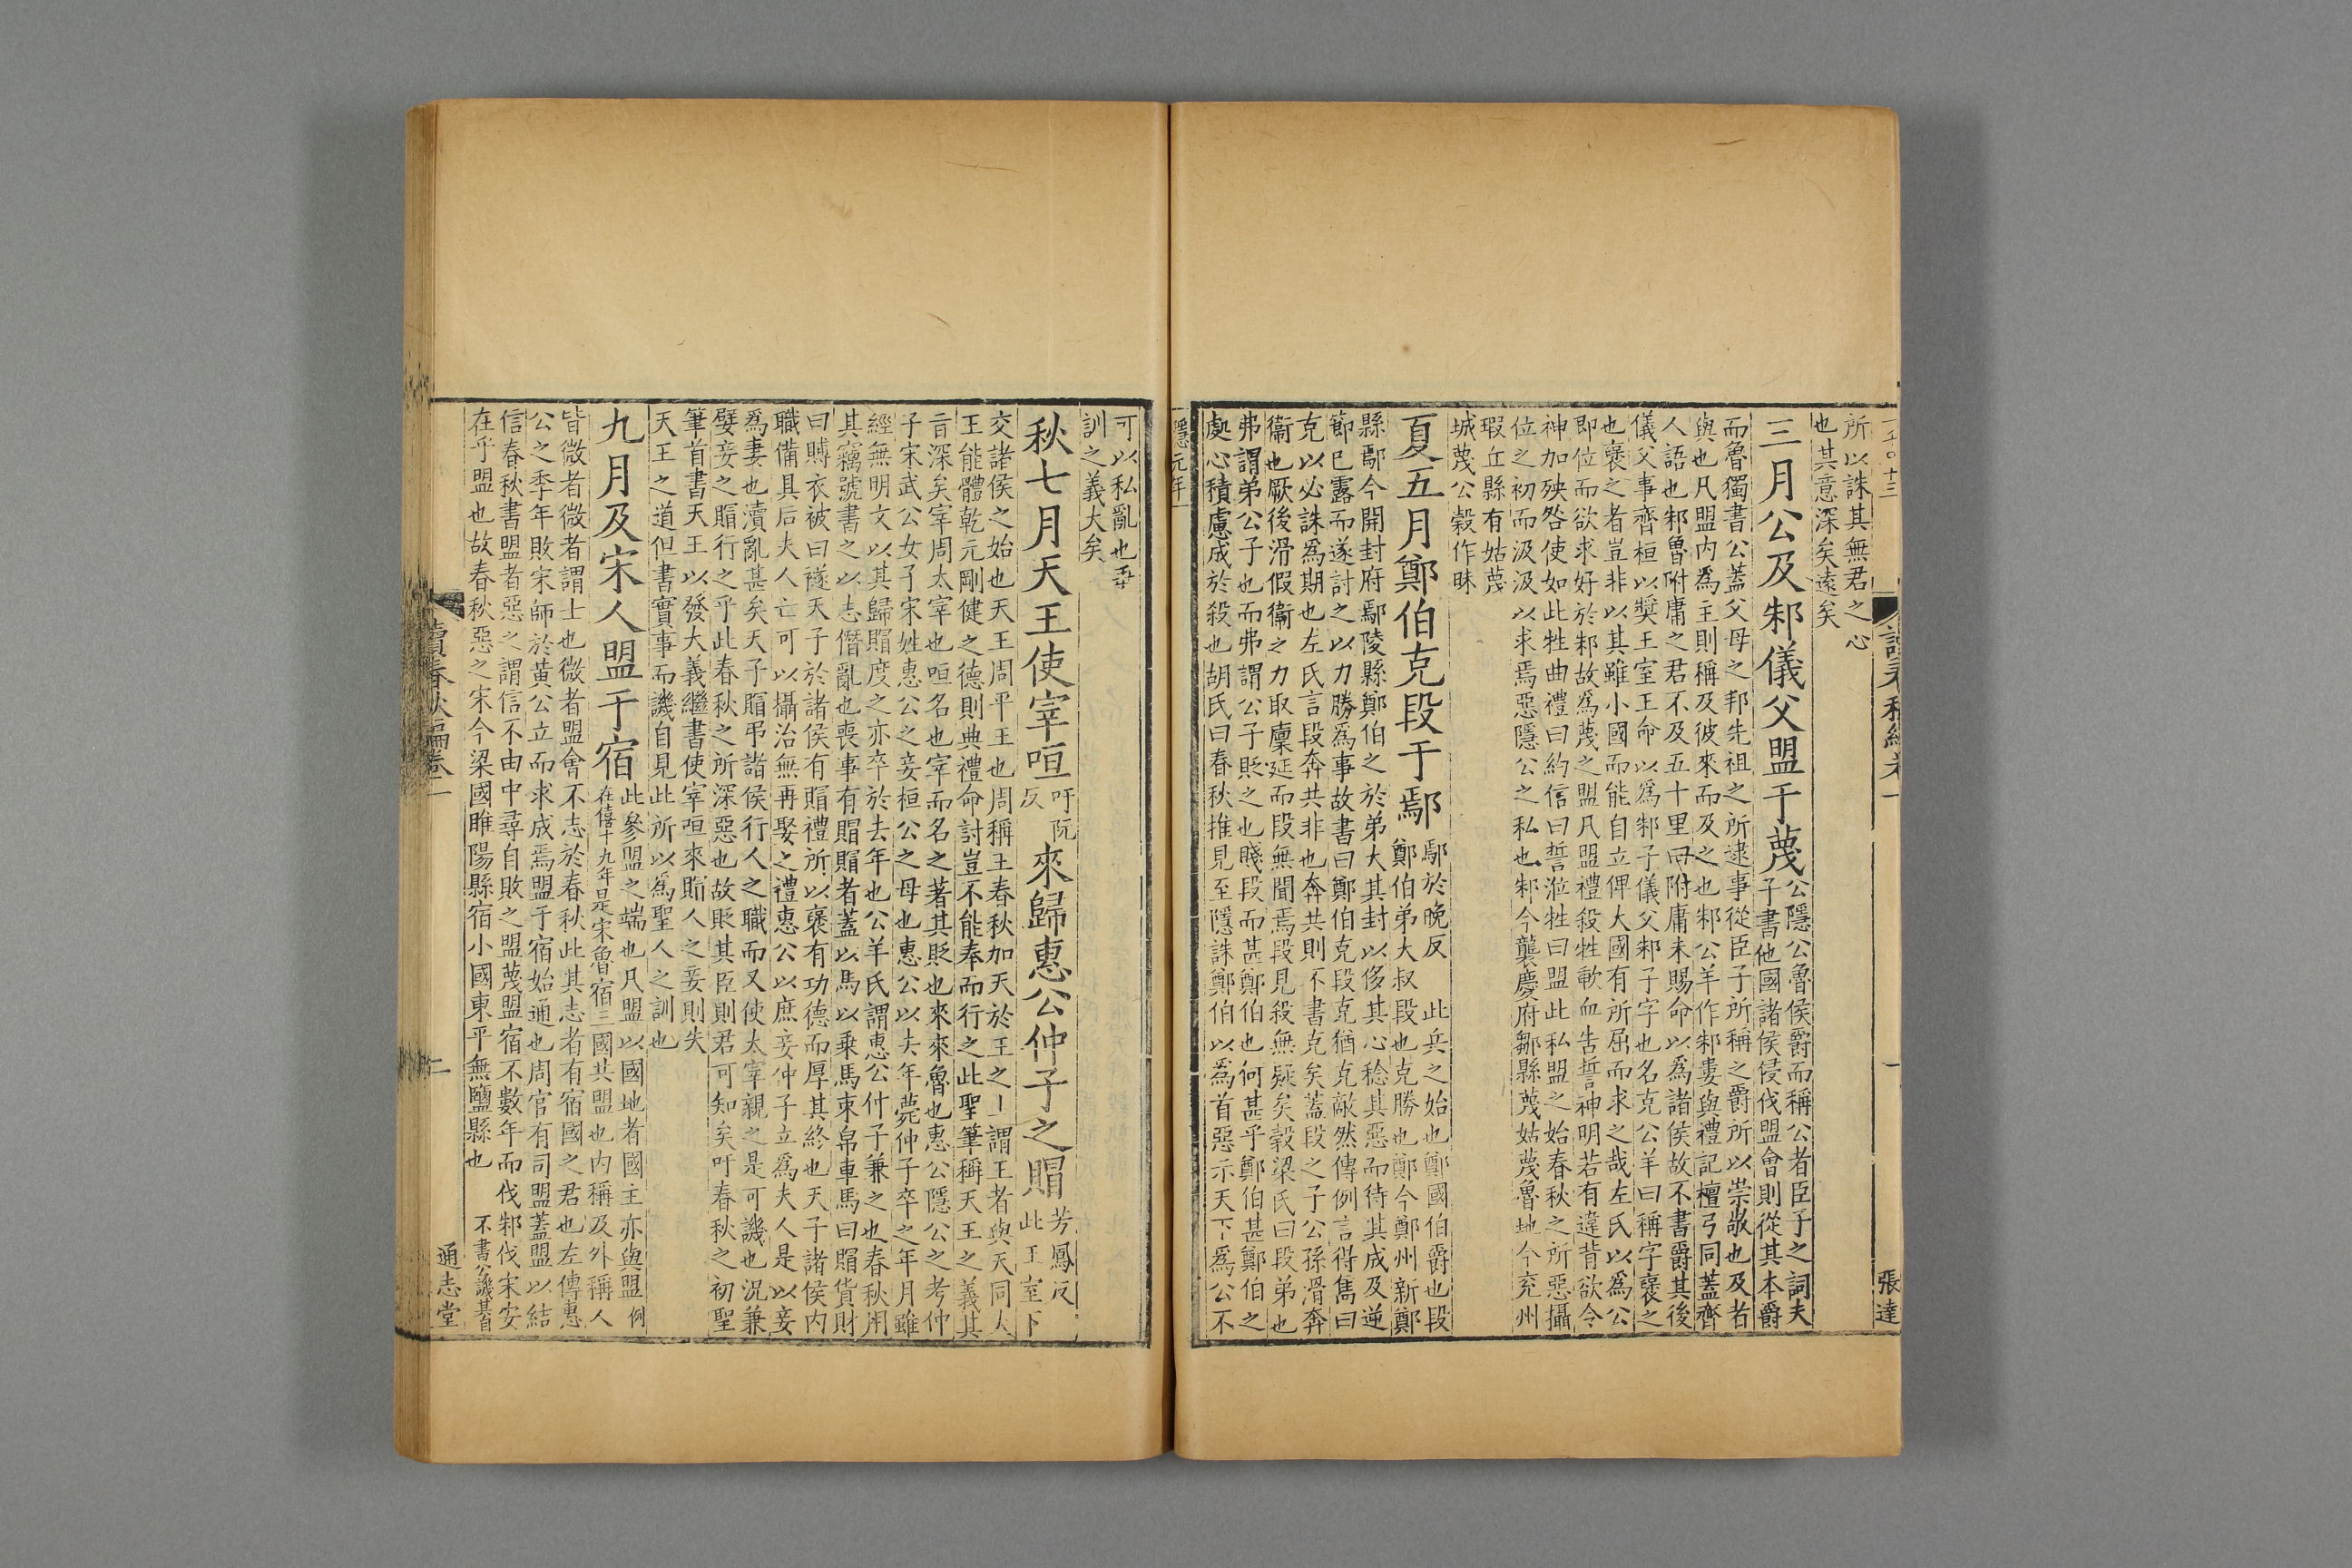 所以誅其無君之心
也其意深矣遠矣
三月公及邾儀父盟于蔑
公隱公魯侯爵而稱公者臣子之詞夫
子書他國諸侯侵伐盟會則從其本爵
而魯獨書公蓋父母之邦先祖之所逮事從臣子所稱之爵所以崇敬也及者
與也凡盟內爲主則稱及彼來而及之也邾公羊作邾婁與禮記檀弓同蓋齊
人語也邾魯附庸之君不及五十里曰附庸未賜命以爲諸侯故不書爵其後
儀父事齊桓以獎王室王命以爲邾子儀父邾子字也名克公羊曰稱字褒之
也褒之者豈非以其雖小國而能自立俾大國有所屈而求之哉左氏以爲公
即位而欲求好於邾故爲蔑之盟凡盟禮殺牲歃血告誓神明若有違背欲令
神加殃咎使如此牲曲禮曰約信曰誓涖牲曰盟此私盟之始春秋之所惡攝
位之初而汲汲以求焉惡隱公之私也邾今襲慶府鄒縣蔑姑蔑魯地今兗州
瑕丘縣有姑蔑
城蔑公穀作眜
夏五月鄭伯克段于鄢
鄢於晚反 此兵之始也鄭國伯爵也段
鄭伯弟大叔段也克勝也鄭今鄭州新鄭
縣鄢今開封府鄢陵縣鄭伯之於弟大其封以侈其心稔其惡而待其成及逆
節已露而遂討之以力勝爲事故書曰鄭伯克段克猶克敵然傳例言得雋曰
克以必誅爲期也左氏言段奔共非也奔共則不書克矣蓋段之子公孫滑奔
衞也厥後滑假衞之力取廩延而段無聞焉段見殺無疑矣穀梁氏曰段弟也
弗謂弟公子也而弗謂公子貶之也賤段而甚鄭伯也何甚乎鄭伯甚鄭伯之
處心積慮成於殺也胡氏曰春秋推見至隱誅鄭伯以爲首惡示天下爲公不
隱元年
張達
可以私亂也垂
訓之義大矣
秋七月天王使宰咺
吁阮
反
來歸惠公仲子之賵
芳鳳反
此王室下
交諸侯之始也天王周平王也周稱王春秋加天於王之上謂王者與天同人
王能體乾元剛健之德則典禮命討豈不能奉而行之此聖筆稱天王之義其
旨深矣宰周太宰也咺名也宰而名之著其貶也來來魯也惠公隱公之考仲
子宋武公女子宋姓惠公之妾桓公之母也惠公以去年薨仲子卒之年月雖
經無明文以其歸賵度之亦卒於去年也公羊氏謂惠公仲子兼之也春秋用
其竊號書之以志僭亂也喪事有賵賵者蓋以馬以乘馬束帛車馬曰賵貨財
曰賻衣被曰襚天子於諸侯有賵禮所以褒有功德而厚其終也天子諸侯內
職備具后夫人亡可以攝治無再娶之禮惠公以庶妾仲子立爲夫人是以妾
爲妻也瀆亂甚矣天子賵弔諸侯行人之職而又使太宰親之是可譏也況兼
嬖妾之賵行之乎此春秋之所深惡也故貶其臣則君可知矣吁春秋之初聖
筆首書天王以發大義繼書使宰咺來賵人之妾則失
天王之道但書實事而譏自見此所以爲聖人之訓也
九月及宋人盟于宿
此參盟之端也凡盟以國地者國主亦與盟例
在僖十九年是宋魯宿三國其盟也內稱及外稱人
皆微者微者謂士也微者盟會不志於春秋此其志者有宿國之君也左傳惠
公之季年敗宋師於黃公立而求成焉盟于宿始通也周官有司盟蓋盟以結
信春秋書盟者惡之謂信不由中尋自敗之盟蔑盟宿不數年而伐邾伐宋安
在乎盟也故春秋惡之宋今梁國睢陽縣宿小國東平無鹽縣也
不書公譏其首
讀春秋編卷一
二
通志堂